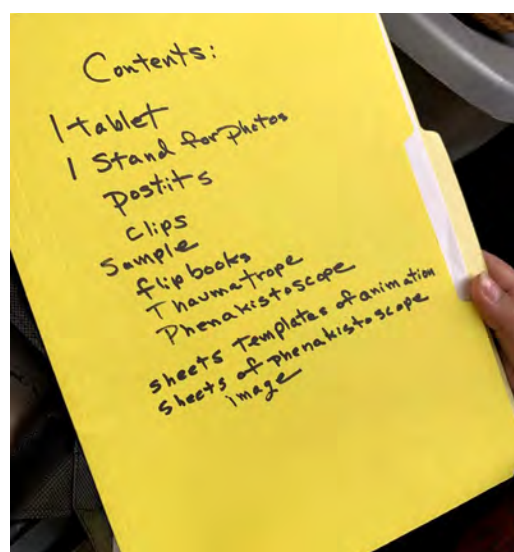 Contents:
1 tablet
1 Stand for photos
postits
clips
Sample
flip books
Thaumatrope
Phenakistoscope
sheets Templates of animation
sheets of phenakistoscope
image